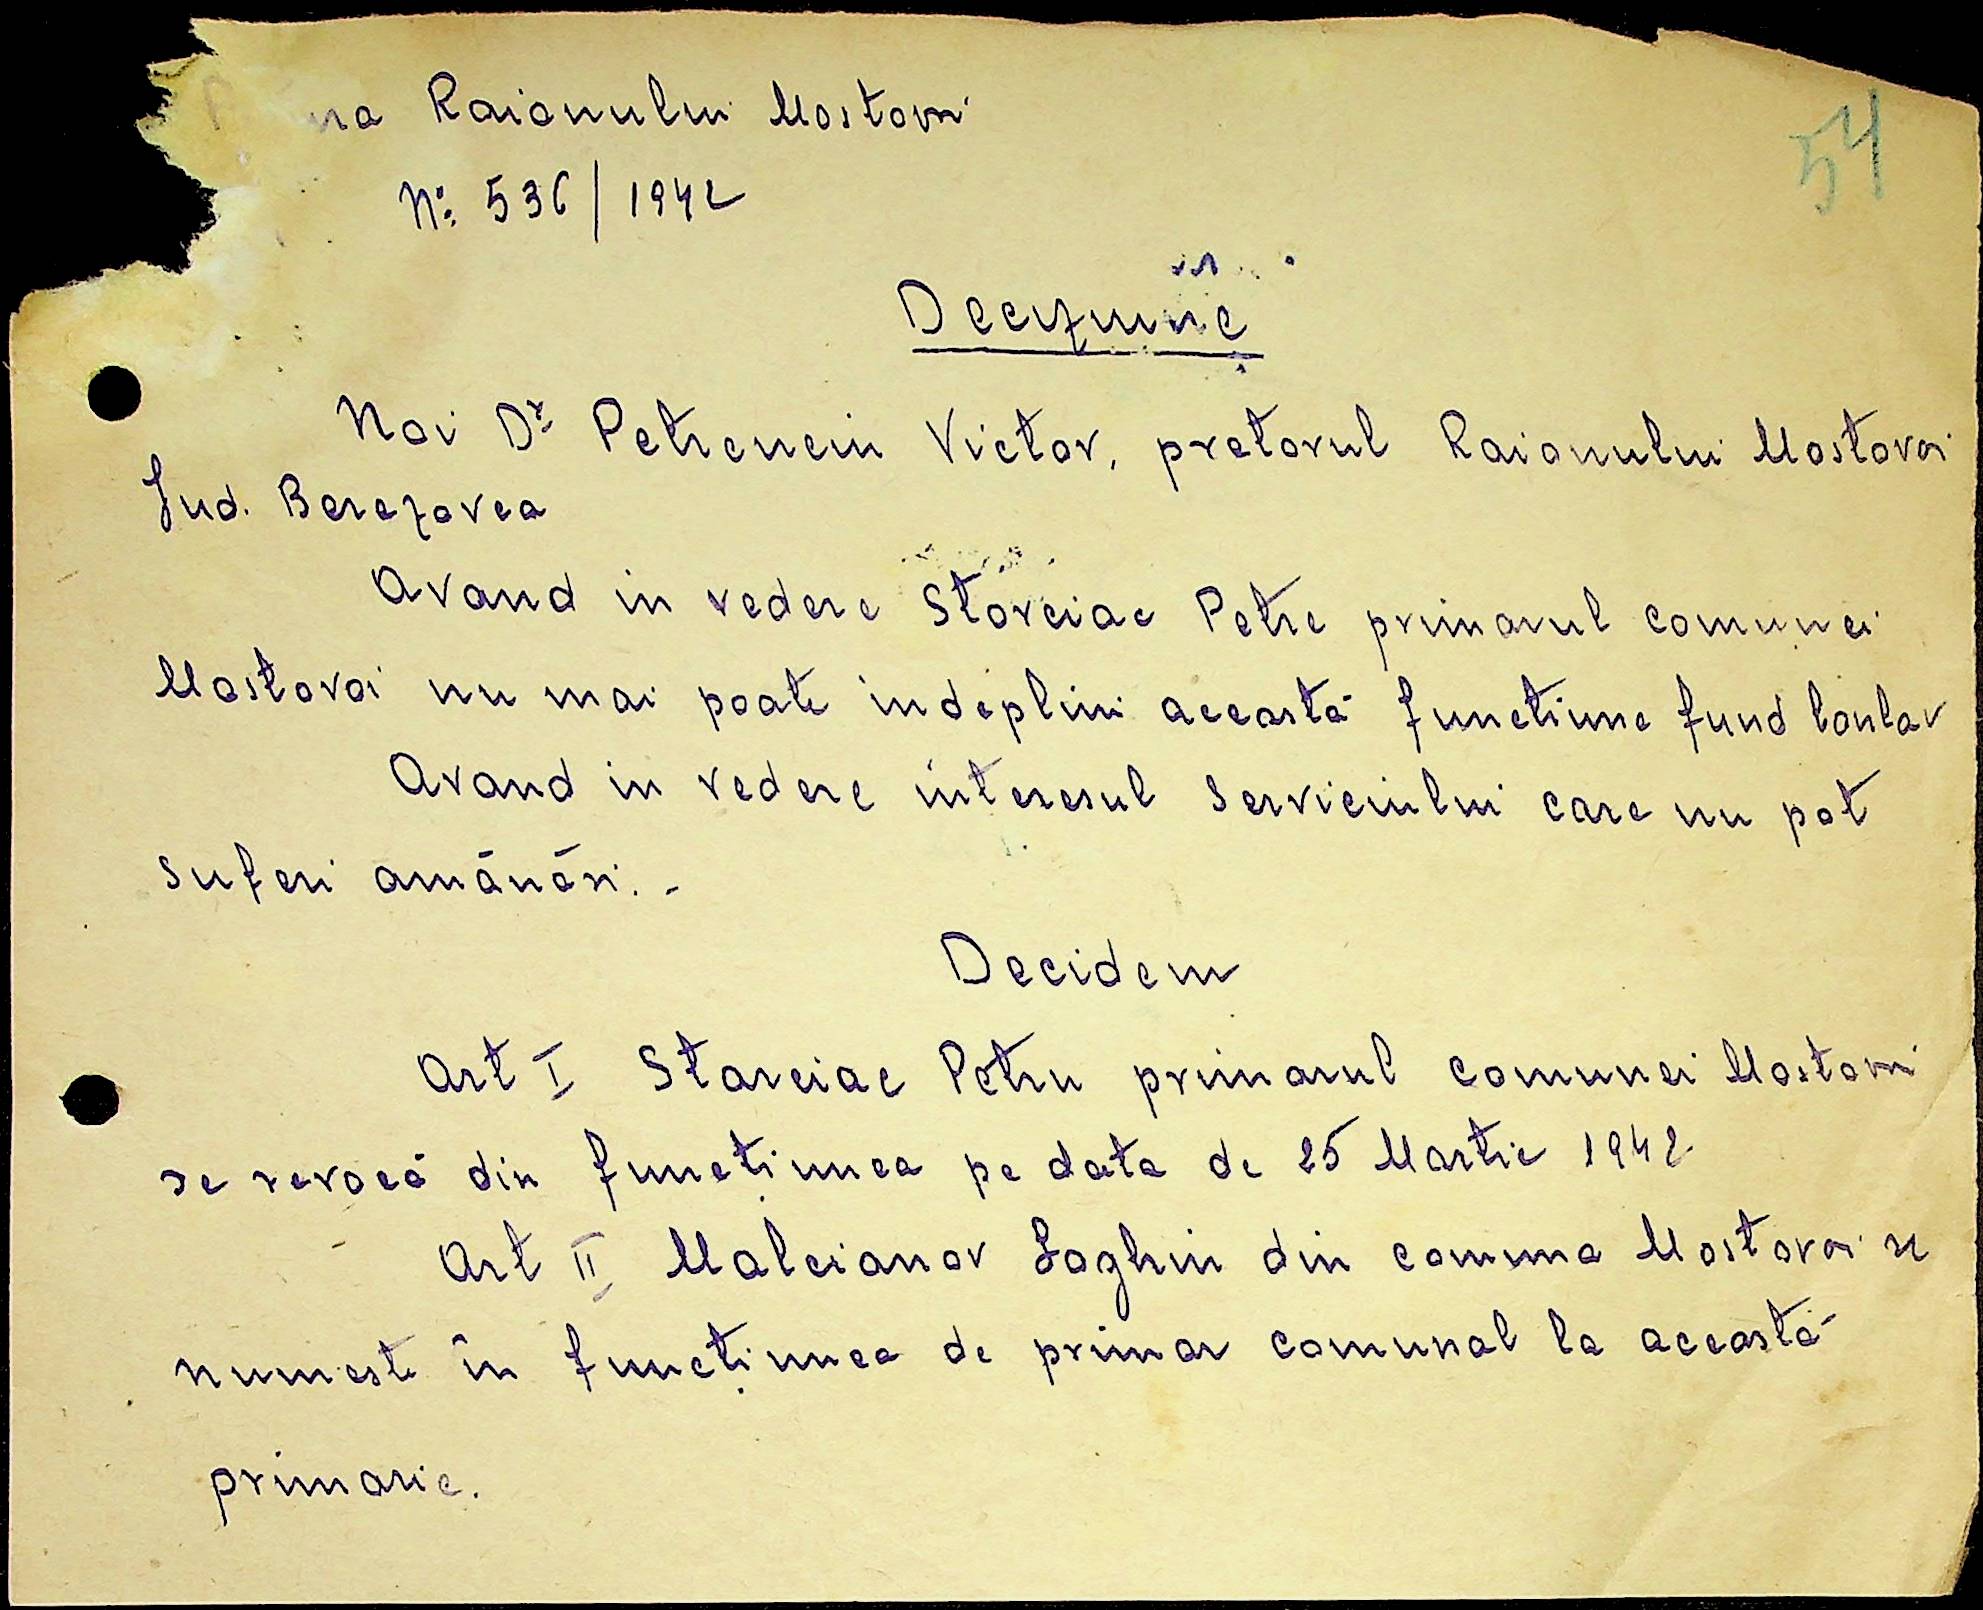 Raionului Mostovoi
54
Nº: 536/1942
Deciziune
Noi Dr Petrenciu Victor, pretorul Raionului Mostovoi
Jud. Berezovca
Avand in vedere Storciac Petre primarul comunei
Mostovoi nu mai poate indeplini această functiune fund bonlav
Avand in vedere interesul serviciului care nu pot
suferi amânări.-
Decidem
Art I Starciac Petru primarul comunei Mostovoi
se revocă din funcţiunea pe data de 25 Martie 1942
Art II Malcianov Loghin din comuna Mostovoi se
numeste în funcţiunea de primar comunal la această
primarie.